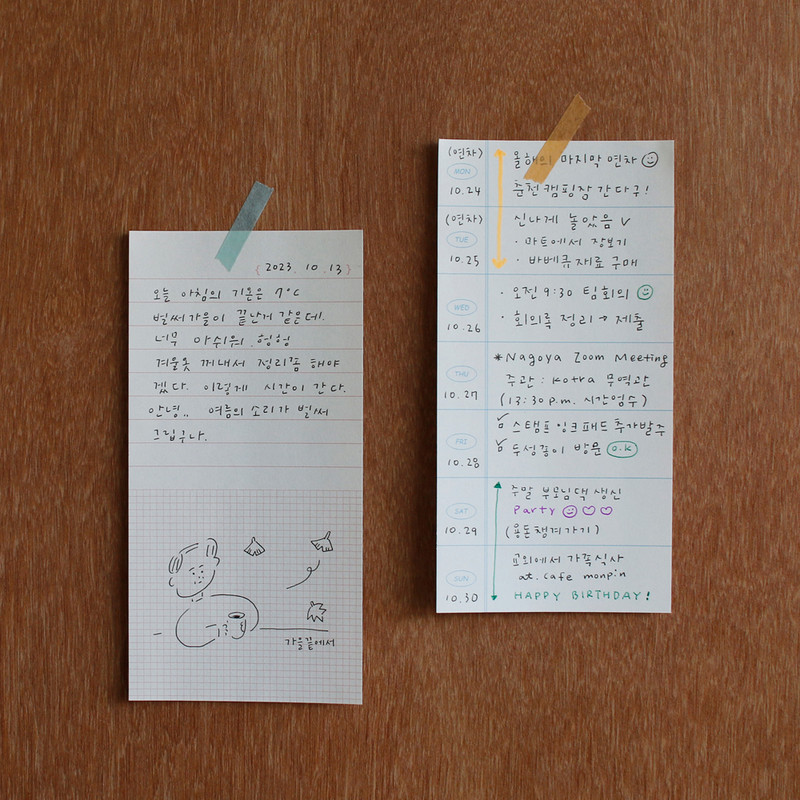 { 2023. 10. 13 }
오늘 아침의 기온은 7°C
벌써가을이 끝난거 같은데.
너무 아쉬워. 헝헝
겨울옷 꺼내서 정리좀 해야
겠다. 이렇게 시간이 간다.
안녕,, 여름의 소리가 벌써
그립구나.
가을끝에서
(연차) 올해의 마지막 연차
MON
10.24 춘천 캠핑장 간다구!
(연차) 신나게 놀았음 v
TUE · 마트에서 장보기
10.25 · 바베큐 재료 구매
· 오전 9:30 팀회의
WED
10.26 · 회의록 정리 → 제출
*Nagoya Zoom Meeting
THU 주관 : kotra 무역관
10.27 (13:30 p.m. 시간엄수)
스탬프 잉크패드 추가발주
FRI 두성종이 방문 O.K
10.28
주말 부모님댁 생신
SAT Party
10.29 (용돈챙겨가기)
교외에서 가족식사
SUN at. cafe monpin
10.30 HAPPY BIRTHDAY!